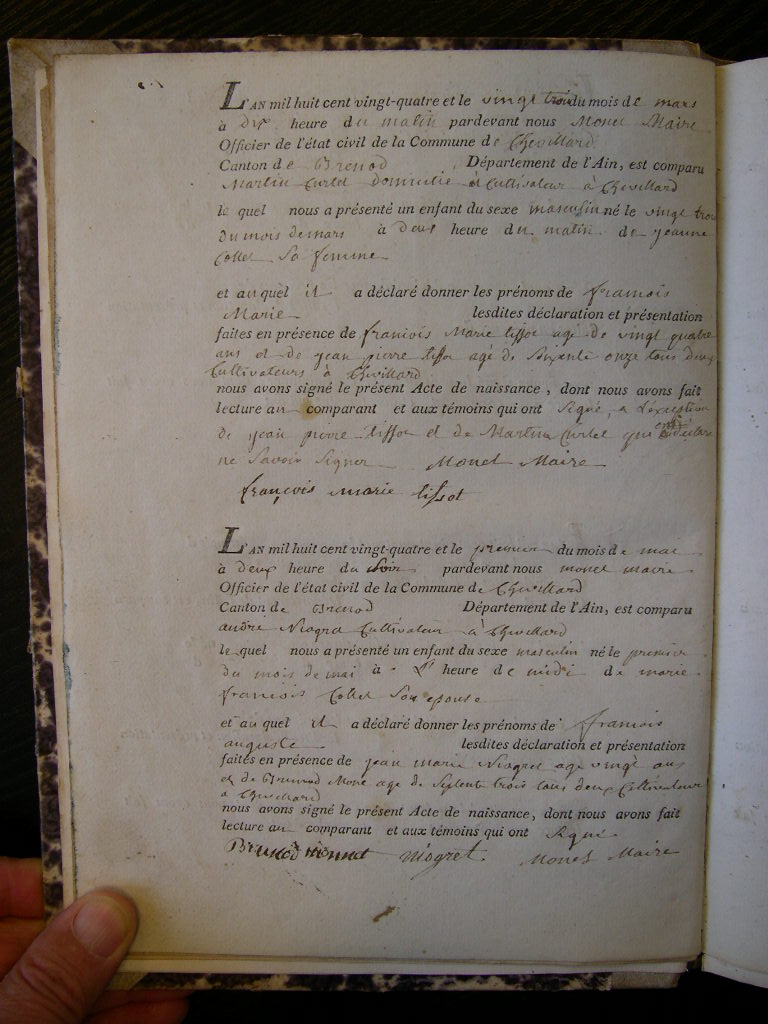 L'AN mil huit cent vingt-quatre et le vingt trois du mois de mars
à dix heure du matin pardevant nous Monet Maire
Officier de l'état civil de la Commune de Chevillard
Canton de Brenod Département de l'Ain, est comparu
Martin Curtet domicilié à cultivateur à Chevillard
le quel nous a présenté un enfant du sexe masculin né le vingt trois
du mois de mars à deux heure du matin de jeanne
Collet Sa femme
et au quel il a déclaré donner les prénoms de francois
Marie lesdites déclaration et présentation
faites en présence de francois Marie tissot agé de vingt quatre
ans et de jean pierre tissot agé de Soixante onze tous deux
Cultivateurs à Chevillard
nous avons signé le présent Acte de naissance, dont nous avons fait
lecture au comparant et aux témoins qui ont Signé, a l'exception
de jean pierre tissot et de Martin Curtet qui ont déclaré
ne Savoir Signer Monet Maire
françois marie tissot
L'AN mil huit cent vingt-quatre et le premier du mois de mai
à deux heure du Soir pardevant nous monet maire
Officier de l'état civil de la Commune de Chevillard
Canton de Brenod Département de l'Ain, est comparu
andre Niogret Cultivateur à Chevillard
le quel nous a présenté un enfant du sexe masculin né le premier
du mois de mai à L' heure de midi de marie
francois Collet Son epouse
et au quel il a déclaré donner les prénoms de francois
auguste lesdites déclaration et présentation
faites en présence de jean marie Niogret age vingt ans
et de Monet age de Septente trois tous deux Cultivateurs
a Chevillard
nous avons signé le présent Acte de naissance, dont nous avons fait
lecture au comparant et aux témoins qui ont Signé
monnet niogret. Monet Maire